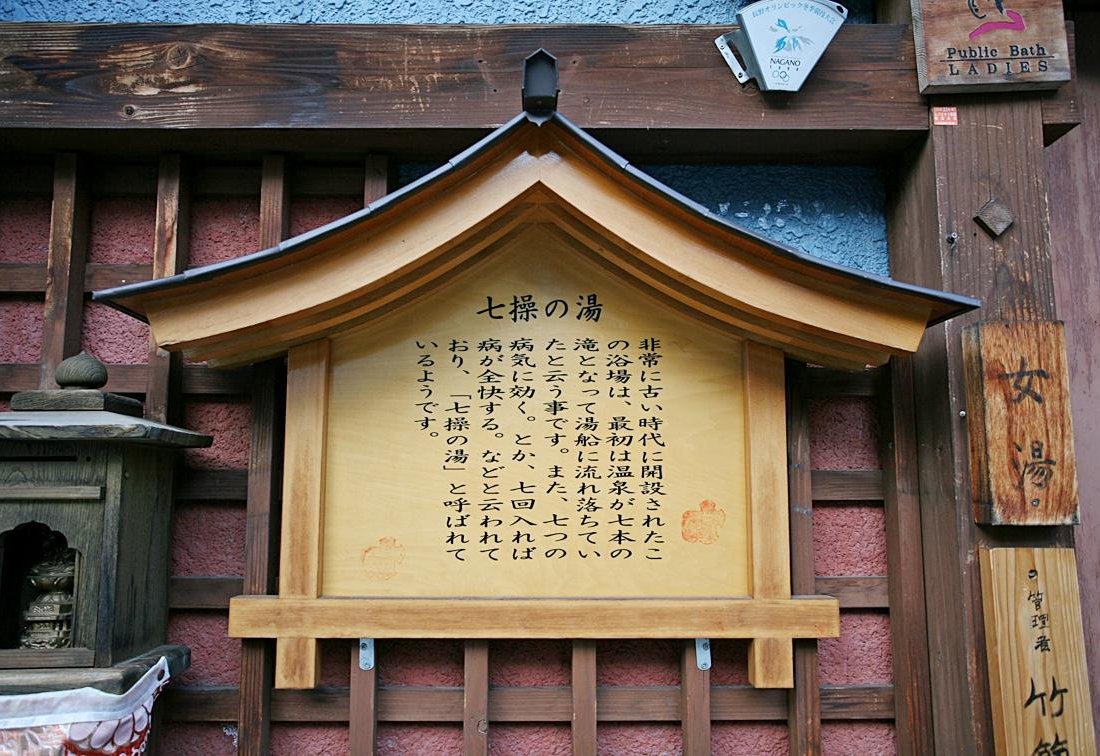 七操の湯
非常に古い時代に開設されたこ
の浴場は、最初は温泉が七本の
滝となって湯船に流れ落ちてい
たと云う事です。また、七つの
病気に効く。とか、七回入れば
病が全快する。などと云われて
おり、「七操の湯」と呼ばれて
いるようです。
長野オリンピック冬季競技大会
NAGANO
1998
Public Bath
LADIES
女湯
管理者
竹